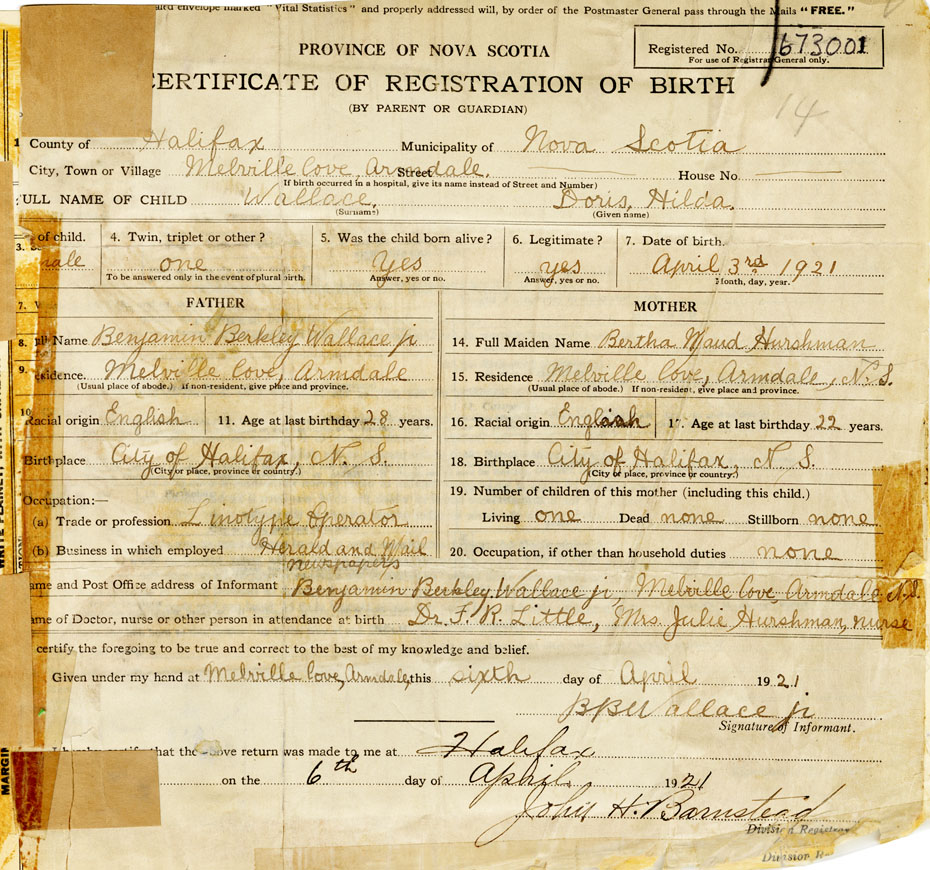 envelope marked "Vital Statistics" and properly addressed will, by order of the Postmaster General pass through the Mails "FREE."
PROVINCE OF NOVA SCOTIA
Registered No. 673001
For use of Registrar General only.
CERTIFICATE OF REGISTRATION OF BIRTH
(BY PARENT OR GUARDIAN)
14
1 County of Halifax Municipality of Nova Scotia
City, Town or Village Melville Cove, Armdale. Street House No.
If birth occurred in a hospital, give its name instead of Street and Number)
ULL NAME OF CHILD Wallace, Doris, Hilda.
(Surname) (Given name)
3. of child. 4. Twin, triplet or other? 5. Was the child born alive? 6. Legitimate? 7. Date of birth.
male one Yes yes April 3rd 1921
To be answered only in the event of plural birth. Answer, yes or no. Answer, yes or no. Month, day, year.
7. FATHER MOTHER
8. Name Benjamin Berkley Wallace jr 14. Full Maiden Name Bertha Maud Hurshman
9. esidence. Melville Cove, Armdale 15. Residence Melville Cove, Armdale, N.S.
(Usual place of abode.) If non-resident, give place and province. (Usual place of abode.) If non-resident, give place and province.
10 Racial origin English 11. Age at last birthday 28 years. 16. Racial origin English 17. Age at last birthday 22 years.
Birthplace City of Halifax, N. S. 18. Birthplace City of Halifax, N. S.
(City or place, province or country.) (City or place, province or country.)
Occupation:— 19. Number of children of this mother (including this child.)
(a) Trade or profession Linotype Operator Living one Dead none Stillborn none
(b) Business in which employed Herald and Mail newspapers 20. Occupation, if other than household duties none
ame and Post Office address of Informant Benjamin Berkley Wallace jr, Melville Cove, Armdale N.S.
ame of Doctor, nurse or other person in attendance at birth Dr. F. R. Little, Mrs. Julie Hurshman, nurse
certify the foregoing to be true and correct to the best of my knowledge and belief.
Given under my hand at Melville Cove, Armdale, this sixth day of April 1921
BBWallace jr
Signature of Informant.
I hereby certify that the above return was made to me at Halifax
on the 6th day of April 1921
John H. Barnstead
Division Registrar
Division
MARGIN